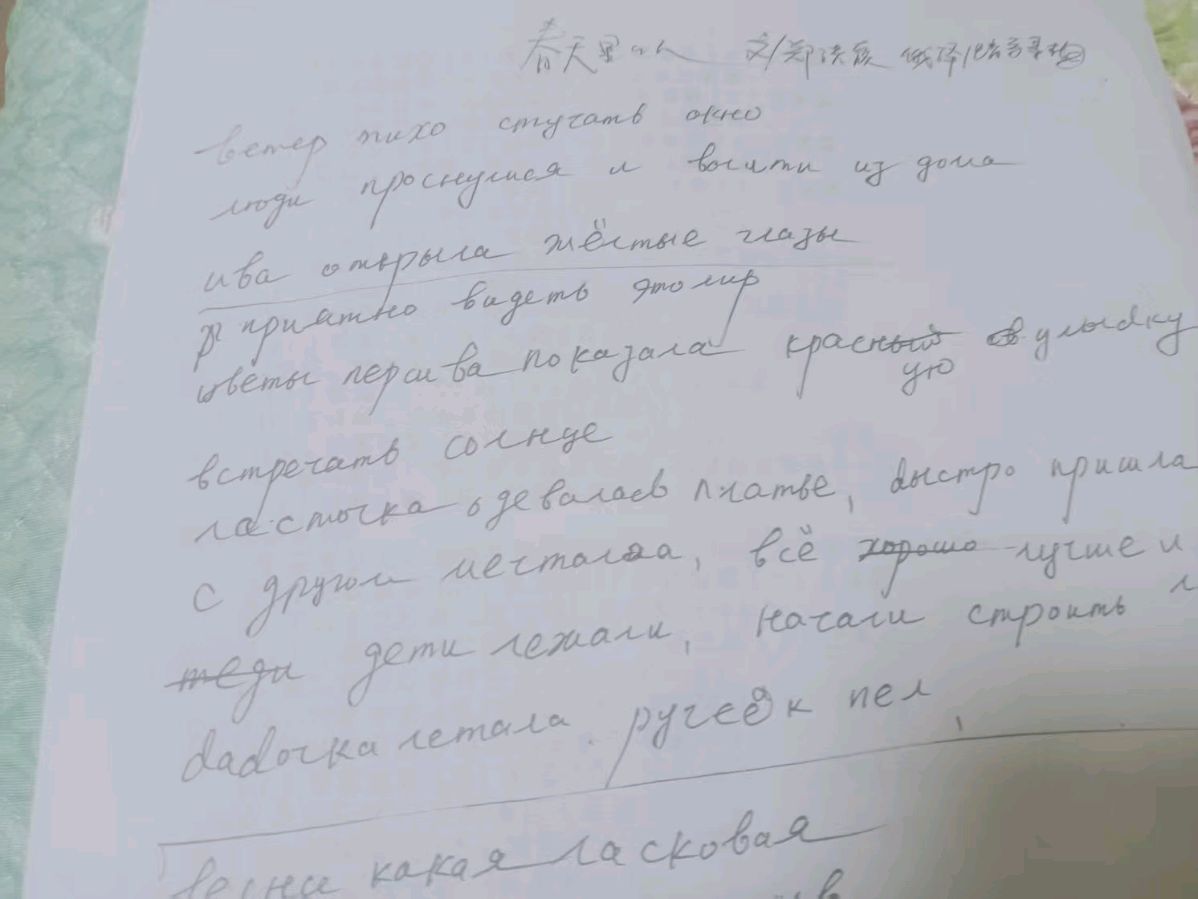 春天里的人 文/郑洪 俄译/
ветер тихо стучать окно
люди проснулися и выйти из дома
ива открыла жёлтые глазы
приятно видеть это мир
цветы персива показала красный ую улыбку
встречать солнце
ласточка одевалась платье, быстро пришла
с другом мечтала, всё хорошо лучше и
теди дети лежали, начали строить
бабочка летала. ручеёк пел,
весни какая ласковая